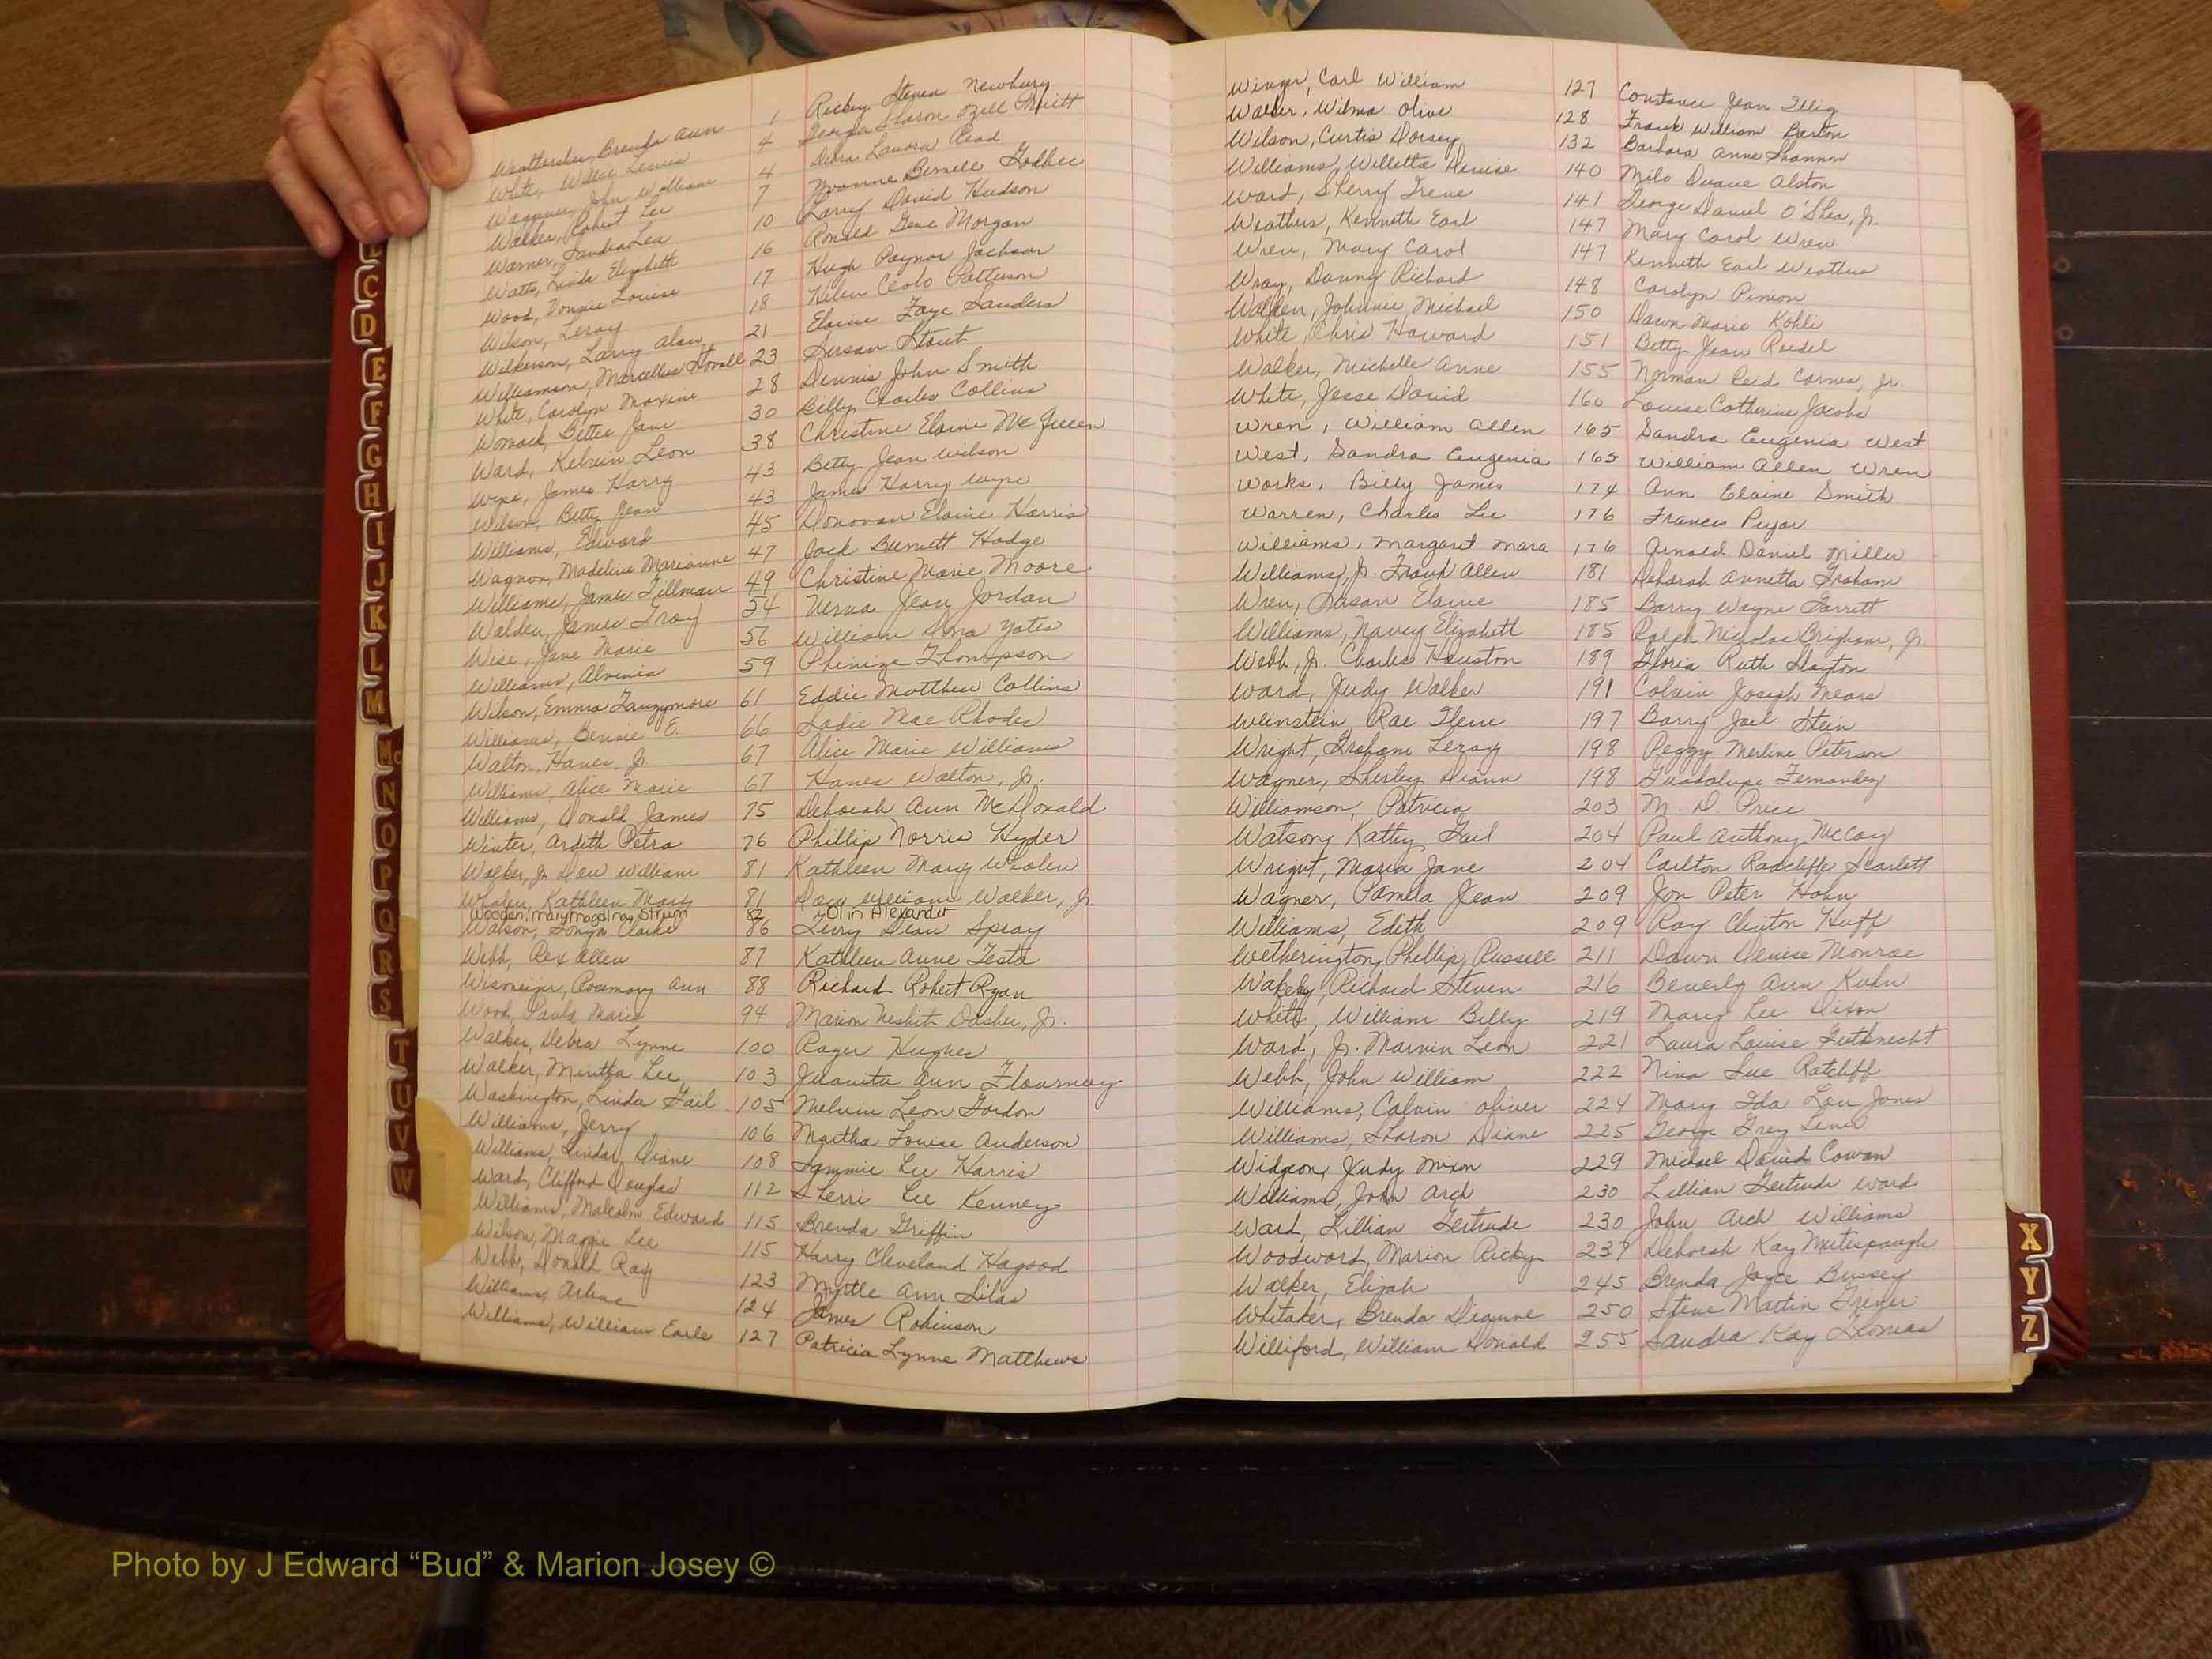 Weathersbee, Brenda Ann 1 Rickey Steven Newbury
White, Willie Lewis 4 Georgia Sharon Ozell Pruitt
Waggoner, John William 4 Debra Lanora Read
Walker, Robert Lee 7 Yvonne Bernele
Warner, Sandra Lea 10 Larry David Hudson
Watts, Linda Elizabeth 16 Ronald Gene Morgan
Wood, Vonnie Louise 17 Hugh Raynor Jackson
Wilson, Leroy 18 Helen Cleolo Patterson
Wilkerson, Larry Alan 21 Elaine Faye Sanders
Williamson, Marcellus Stovall 23 Susan Stout
White, Carolyn Maxine 28 Dennis John Smith
Womack, Bettie Jane 30 Billy Charles Collins
Ward, Kelvin Leon 38 Christine Elaine McGueen
Wype, James Harry 43 Betty Jean Wilson
Wilson, Betty Jean 43 James Harry Wype
Williams, Edward 45 Donovan Elaine Harris
Wagnon, Madeline Marianne 47 Jack Burnett Hodge
Williams, James Tillman 49 Christine Marie Moore
Walden, James Troy 54 Verna Jean Jordan
Wise, Jane Marie 56 William Yates
Williams, Alvinia 59 Phinize Thompson
Wilson, Emma Tanzymore 61 Eddie Matthew Collins
Williams, Bennie E. 66 Sadie Mae Rhodes
Walton, Hanes, Jr. 67 Alice Marie Williams
Williams, Alice Marie 67 Hanes Walton, Jr.
Williams, Donald James 75 Deborah Ann McDonald
Winter, Ardith Petra 76 Phillip Norris Hyder
Walker, Jr. Daw William 81 Kathleen Mary Whalen
Whalen, Kathleen Mary 81 Daw William Walker, Jr.
Wooden, Mary Magdline Strum 82 Olin Alexander
Watson, Sonya Clarke 86 Terry Dean Spray
Webb, Rex Allen 87 Kathleen Anne Testa
Wismeijer, Rosemary Ann 88 Richard Robert Ryan
Wood, Paula Marie 94 Marion Nesbit Dasher, Jr.
Walker, Debra Lynne 100 Roger Hughes
Walker, Mintha Lee 103 Juanita Ann Flournoy
Washington, Linda Gail 105 Melvin Leon Gordon
Williams, Jerry 106 Martha Louise Anderson
Williams, Linda Diane 108 Sammie Lee Harris
Ward, Clifford Douglas 112 Sherri Lee Kenney
Williams, Malcolm Edward 115 Brenda Griffin
Wilson, Maggie Lee 115 Harry Cleveland Hagood
Webb, Donald Ray 123 Myrtle Ann Silas
Williams, Arlene 124 James Robinson
Williams, William Earle 127 Patricia Lynne Matthews
Winger, Carl William 127 Constance Jean Illig
Walker, Wilma Olive 128 Frank William Barton
Wilson, Curtis Dorsey 132 Barbara Anne Shannon
Williams, Willetta Denise 140 Milo Duane Alston
Ward, Sherry Irene 141 George Daniel O'Shea, Jr.
Weathers, Kenneth Earl 147 Mary Carol Wren
Wren, Mary Carol 147 Kenneth Earl Weathers
Wray, Danny Richard 148 Carolyn Pinion
Walden, Johnnie Michael 150 Dawn Marie Kohli
White, Chris Howard 151 Betty Jean Roesel
Walker, Michelle Anne 155 Norman Reid Carnes, Jr.
White, Jesse David 160 Louise Catherine Jacobs
Wren, William Allen 165 Sandra Eugenia West
West, Sandra Eugenia 165 William Allen Wren
Works, Billy James 174 Ann Elaine Smith
Warren, Charles Lee 176 Frances Pryor
Williams, Margaret Mara 176 Arnold Daniel Miller
Williams, Jr. Frank Allen 181 Deborah Annetta Graham
Wren, Susan Elaine 185 Barry Wayne Garrett
Williams, Nancy Elizabeth 185 Ralph Nicholas Brigham, Jr.
Webb, Jr. Charles Houston 189 Gloria Ruth Slayton
Ward, Judy Walker 191 Calvin Joseph Mears
Weinstein, Rae Ilene 197 Barry Joel Stein
Wright, Graham Leroy 198 Peggy Merline Peterson
Wagner, Shirley Diann 198 Guadalupe Fernandez
Williamson, Patricia 203 M. D. Price
Watson, Kathy Gail 204 Paul Anthony McCoy
Wright, Maria Jane 204 Carlton Radcliffe Scarlett
Wagner, Pamela Jean 209 Jon Peter Hahn
Williams, Edith 209 Ray Clinton Huff
Wetherington, Phillip Russell 211 Dawn Denise Monroe
Wakeby, Richard Steven 216 Beverly Ann Kuhn
White, William Billy 219 Mary Lee Dixon
Ward, Jr. Marvin Leon 221 Laura Louise Gutknecht
Webb, John William 222 Nina Sue Ratcliff
Williams, Calvin Oliver 224 Mary Ida Lou Jones
Williams, Sharon Diane 225 George Grey
Widgeon, Judy Mixon 229 Michael David Cowan
Williams, John Arch 230 Lillian Gertrude Ward
Ward, Lillian Gertrude 230 John Arch Williams
Woodward, Marion Ricky 237 Deborah Kay Mutispaugh
Walker, Elijah 245 Brenda Joyce Bussey
Whitaker, Brenda Dianne 250 Steve Martin Griner
Williford, William Donald 255 Sandra Kay Thomas
C
D
E
F
G
H
I
J
K
L
M
Mc
N
O
P
Q
R
S
T
U
V
W
X
Y
Z
Photo by J Edward “Bud” & Marion Josey ©